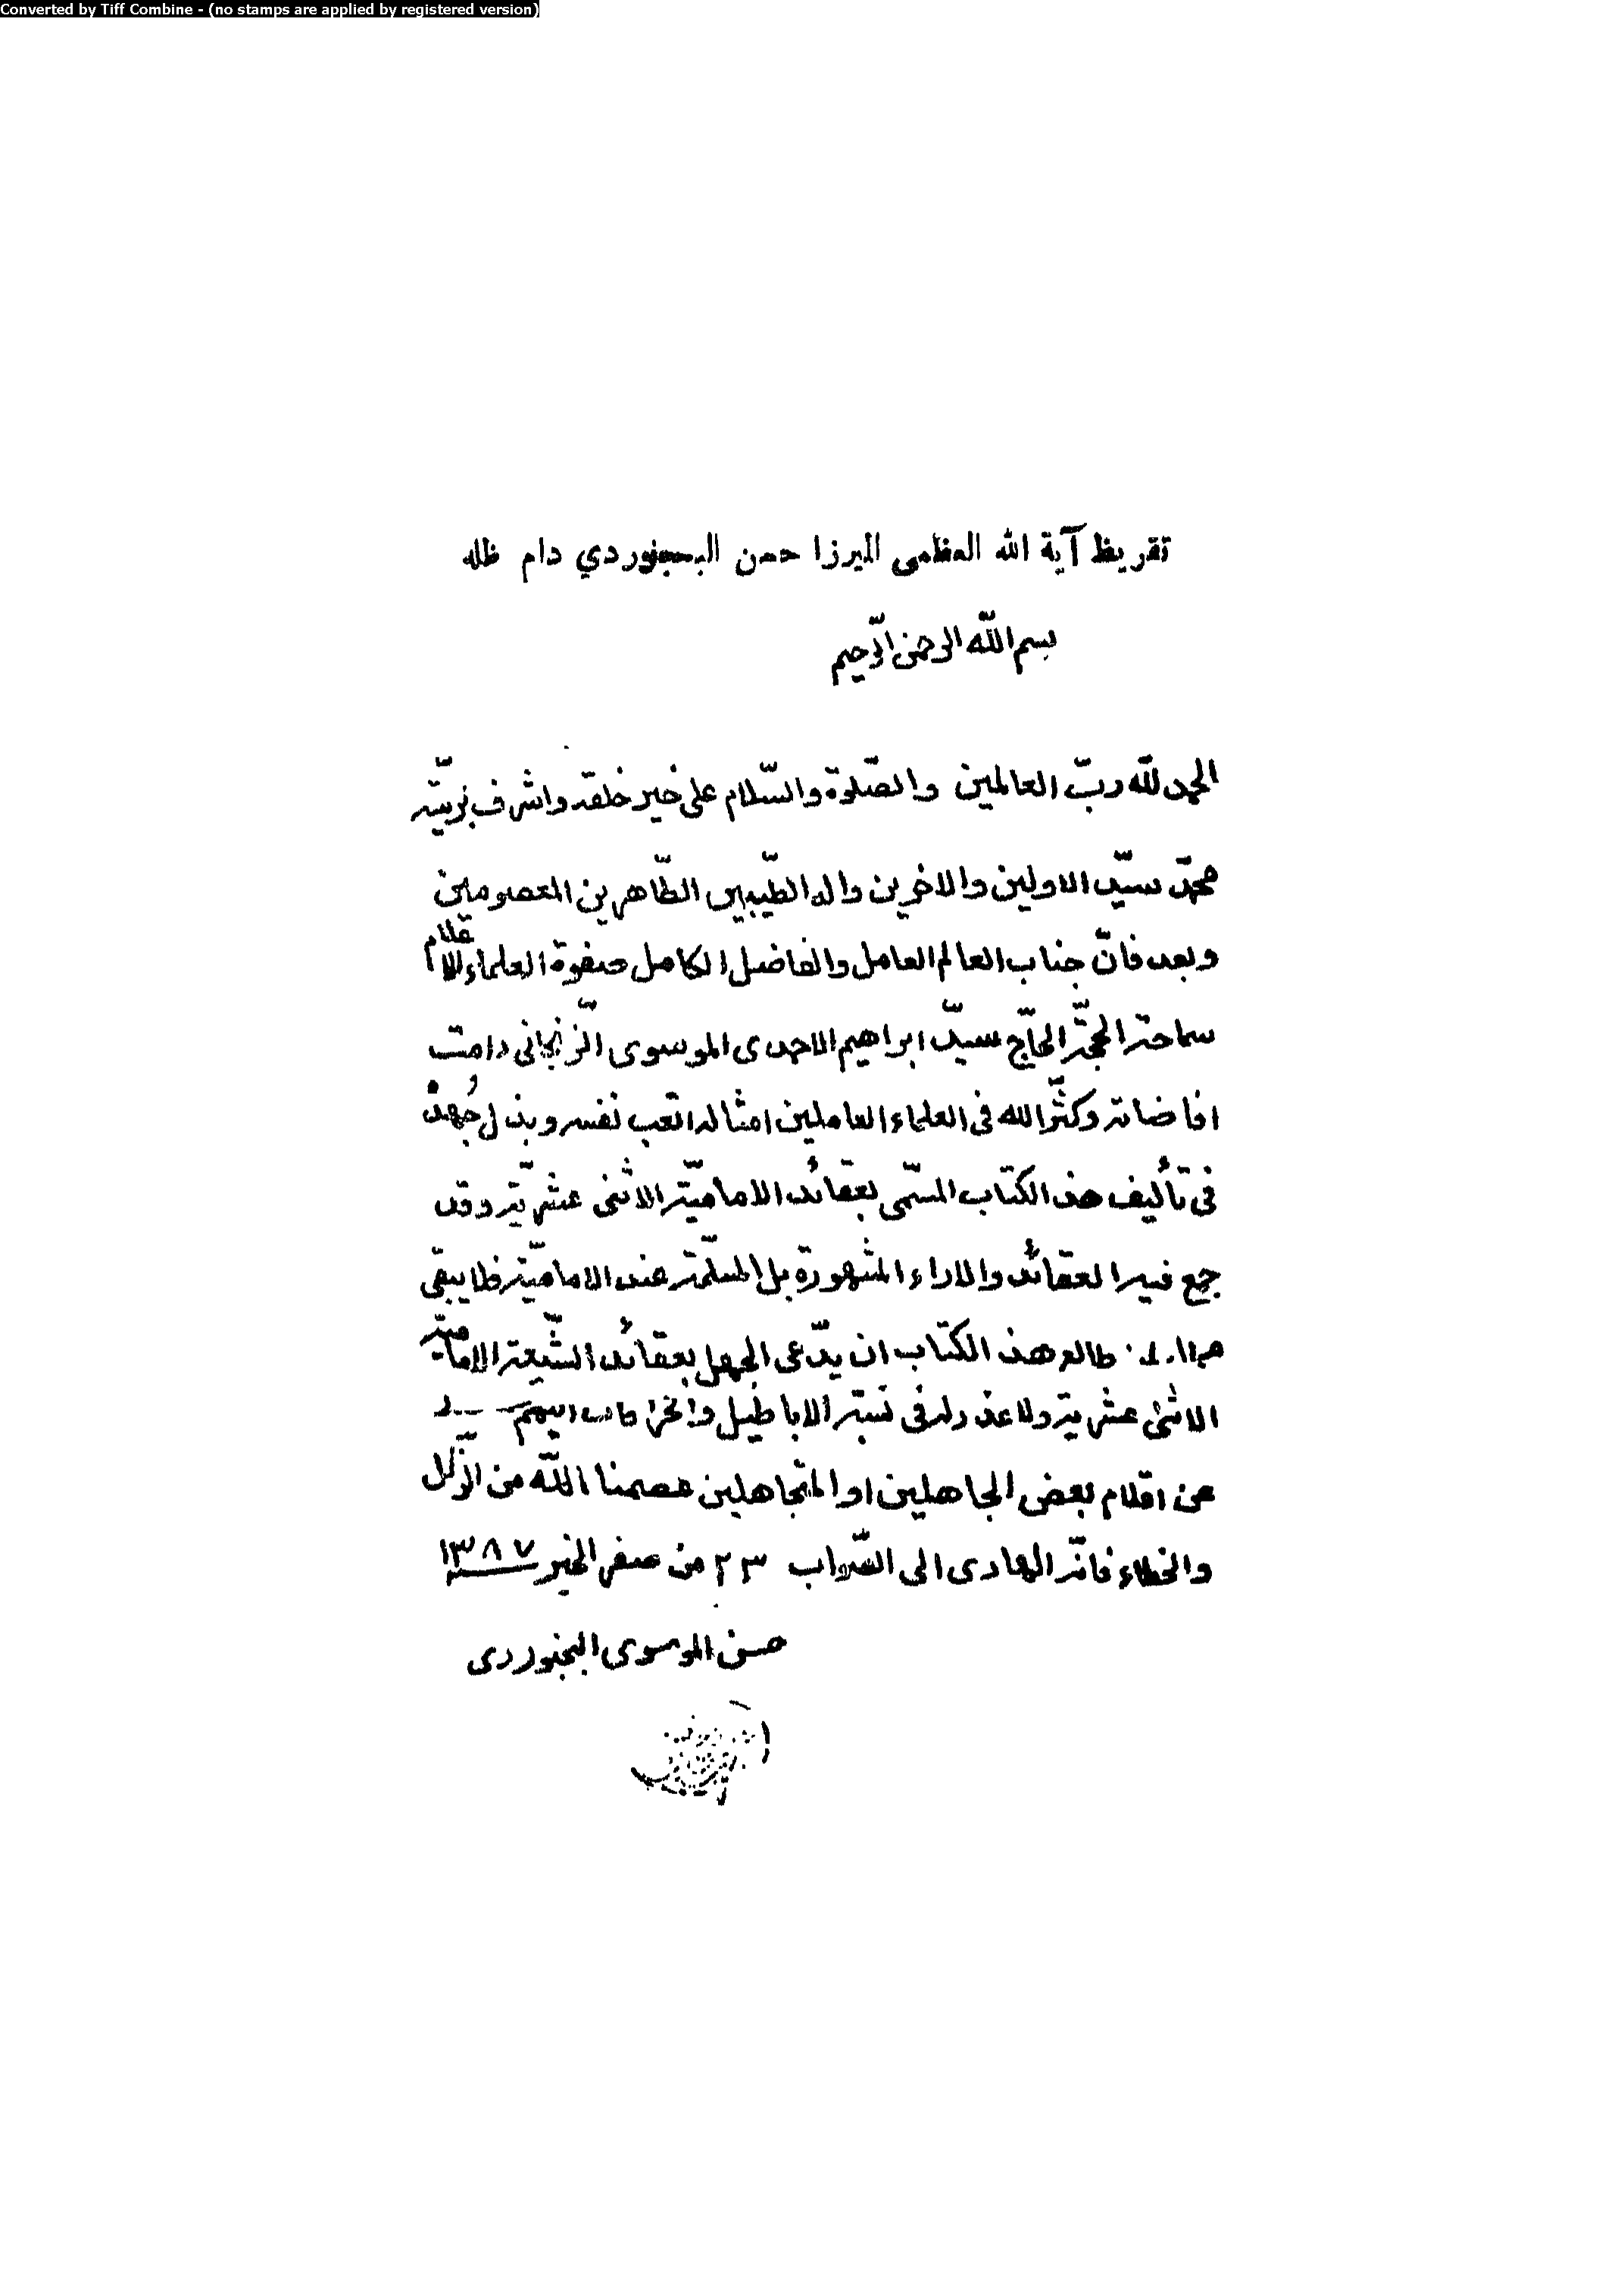 Converted by Tiff Combine - (no stamps are applied by registered version)
تقريظ آية الله العظمى الميرزا حسن البجنوردي دام ظله
بسم اللّه الرحمن الرّحيم
الحمد للّه ربّ العالمين والصّلوة والسّلام على خير خلقه واشرف بريّته
محمّد سيّد الاولين والاخرين واله الطيّبين الطّاهرين المعصومين
وبعد فانّ جناب العالم العامل والفاضل الكامل صفوة العلماء الاعلام
سماحة الحجّة الحاّج سيّد ابراهيم الاحمدى الموسوى الزّنجانى دامت
افاضاته وكثّر الله فى العلماء العاملين امثاله اتعب نفسه وبذل جُهده
فى تأليف هذ الكتاب المسّمى بعقائد الاماميّة الاثنى عشريّة وقد
جمع فيه العقائد والاراء المشهورة بل المسلّمة عند الاماميّة فلا يبقى
طالع هذ الكتاب ان يدّعى الجهل بعقائد الشّيعة الاماميّة
الاثنى عشرية ولا عذر له فى نسبة الاباطيل والخرافات اليهم
من اقلام بعض الجاهلين او المتجاهلين عصمنا اللّه من الزّلل
والخطاء فانّه الهادى الى الصّواب ٢٣ من صفر الخير ١٣٨٧
حسن الموسوى البجنوردى